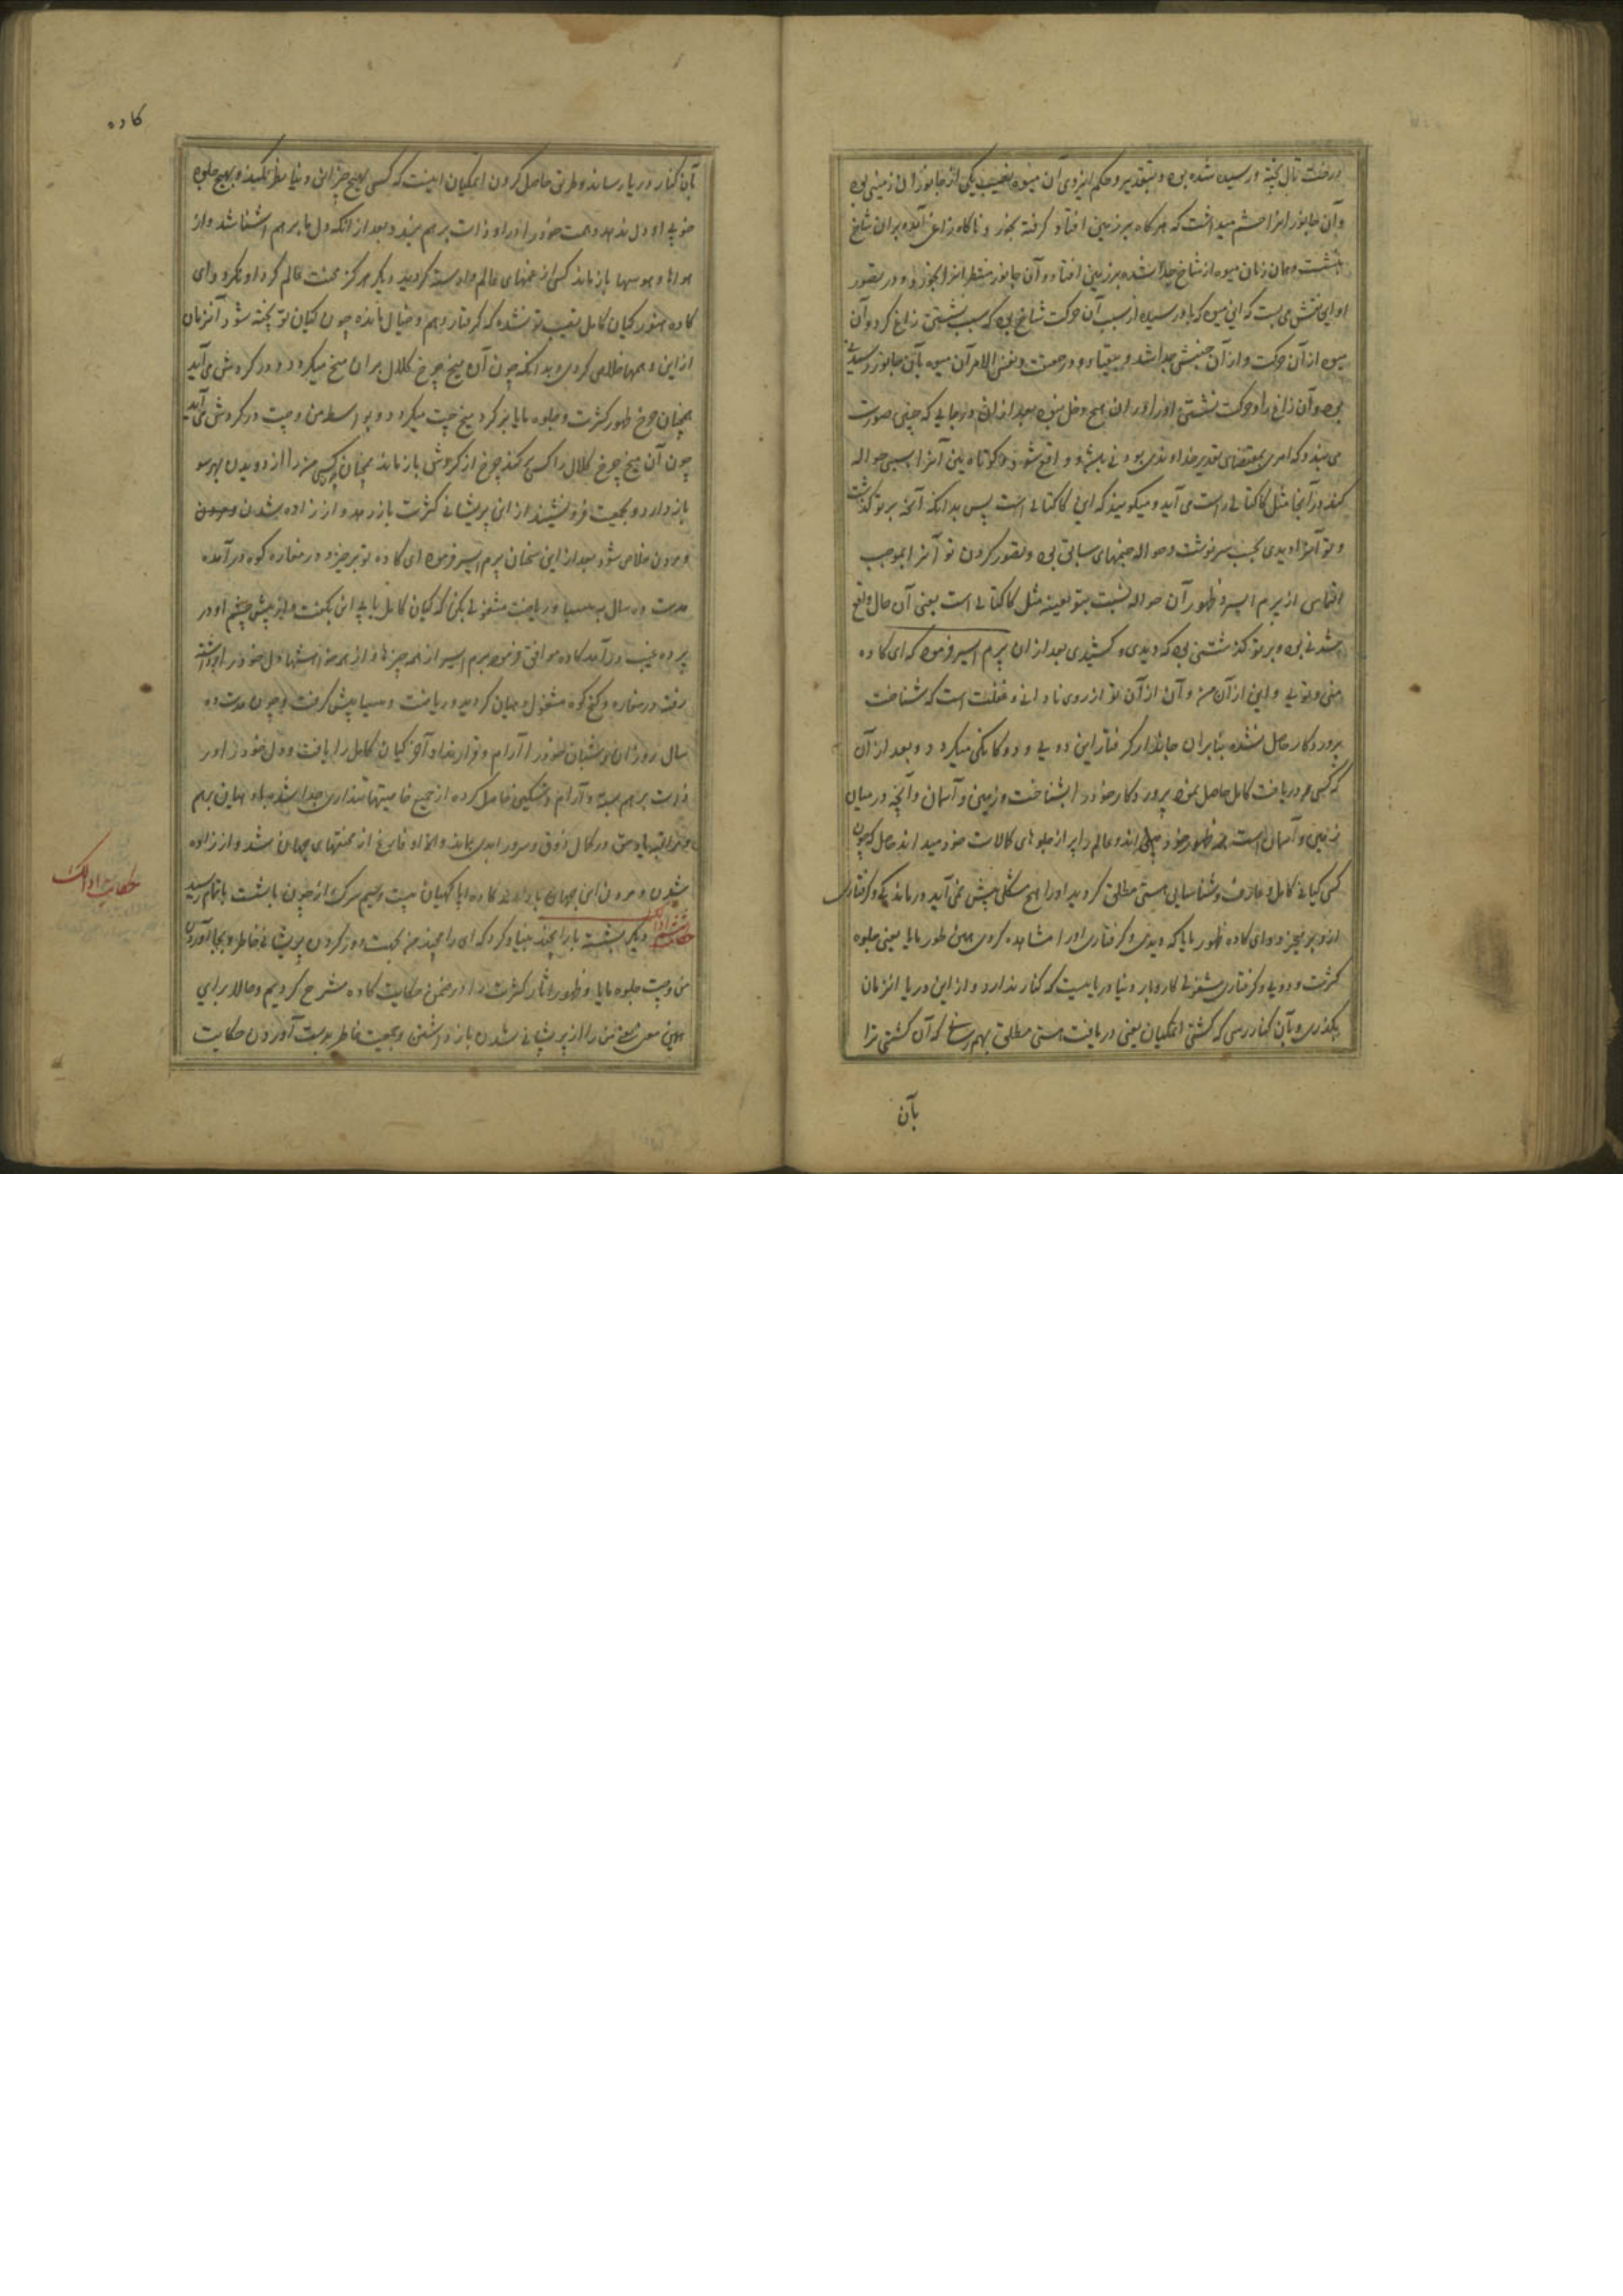 درخت تال پخته و رسیده شده بود و بتقدیر و حکم ایزدی آن میوه نصیب یکی از جانوران زمینی بود
و آن جانور انرا چشم میداشت که هرگاه بر زمین افتاد گرفته بخورد ناگاه زاغی آمده بر آن شاخ
بنشست و همان زمان میوه از شاخ جدا شده بر زمین افتاد و آن جانور منتظر انرا بخورد و در تصور
او این نقش می بست که این میوه که باو رسیده از سبب آن حرکت شاخ بود که سبب نشستن زاغ کرد و آن
میوه از آن حرکت و از آن جنبش جدا شد و بیفتاد و در حقیقت و نفس الامر آن میوه بآن جانور رسیدنی
بود و آن زاغ را و حرکت نشستن او را در ان هیچ دخل نبود بعد از ان در جایی که چنین صورت
می بندد که امری بمقتضای تقدیر خداوندی بودنی باشد و واقع شود و کوتاه بین آنرا بسببی حواله
کند در آنجا مثل کاکتالی راست می آید و میگویند که این کاکتالی است پس بدانکه آنچه بر تو گذشت
و تو آنرا دیدی بحسب سرنوشت و حواله جنمهای سابق بود و تصور کردن تو آنرا بموجب
التماس از برم ایسر و ظهور آن حواله نسبت بتو بعینه مثل کاکتالی است یعنی آن حال واقع
شدنی بود و بر تو گذشتنی بود که دیدی و کشیدی بعد از ان برم ایسر فرمود که ای کاده
منی و تویی و این از آن من و آن از آن تو از روی نادانی و غفلت است که شناخت
پروردگار حاصل نشده بنابران جاندار گرفتار این دویی و دوگانگی میگردد و بعد از آن
که کسی در دریافت کامل حاصل نموده پروردگار خود را بشناخت و زمین و آسمان و آنچه در میان
زمین و آسمان است همه ظهور خود میداند و عالم را پر از جلوهای کمالات خود میداند حاصل که چون
کسی کیانی کامل و عارف و شناسایی هستی مطلق گردید او را هیچ مشکلی پیش نمی آید و درماندگی و گرفتاری
ازو بر نخیزد و ای کاده ظهور مایا که دیدی و گرفتاری او را مشاهده کردی همین طور مایا یعنی جلوه
کثرت و دویی و گرفتاری مشغولی کاروبار دنیا دریاییست که کنار ندارد و از این دریا انزمان
بگذری و بآن کنار رسی که کشتی اتمگیان یعنی دریافت هستی مطلق بهم رسانی که آن کشتی ترا
بآن
کاده
بآن کنار دریا رساند و طریق حاصل کردن اتمگیان اینست که کسی بهیچ چیز این دنیا نظر نکند و بهیچ جلوه
خوبی او دل ندهد و همت خود را در او ذات برهم بندد و بعد از انکه دل با برهم اشنا شد و از
هواها و هوسها باز ماند کسی از غمهای عالم وارسته گردید دیگر هرگز محنت عالم گرد او نگردد ای
کاده هنوز گیان کامل نصیب تو نشده که گرفتار وهم و خیال مانده چون گیان تو پخته شود آنزمان
از این وهمها خلاصی گردی و بدانکه چون آن میخ چرخ کلال بر آن میخ میگردد و در گردش می آید
همچنان چرخ ظهور کثرت و جلوه مایا بر گرد میخ چت میگردد و بواسطه من و چت در گردش می آید
چون آن میخ چرخ کلال را کسی بکند چرخ از گردش باز ماند همچنان کسی من را از دویدن بهر سو
باز دارد و بجمعیت فرو نشیند از این پریشانی کثرت باز رهد و از زاده شدن و مردن
و مردن خلاص شود بعد از این سخنان برم ایسر فرمود ای کاده تو برخیز و در مغاره کوه در آمده
مدت ده سال به تپسیا و ریاضت مشغولی بکن که گیان کامل یابی این بگفت و از پیش چشم او در
پرده غیب در آمد کاده موافق فرموده برم ایسر از همه چیزها و از همه خواهشها دل خود را برداشته
رفت در مغاره و کنج کوه مشغول دهیان گردید و ریاضت و تپسیا پیش گرفت و چون مدت ده
سال روزان و شبان خود را آرام و قرار نداد آخر گیان کامل را یافت و دل خود را در
ذات برهم بسته و آرام و تسکین حاصل کرده از جمیع خاصیتها شداری جدا شده با دهیان برهم
و مراقبه یاد حق در کمال ذوق و سرور ابدی بماند و آزاد و فارغ از محنتهای جهان شد و از زاده
شدن و مردن این جهان باز ماند کاده اپا کهیان بیست و سیم سرگ از چون باشست باتمام رسید
حکایت ادالک دیگر بشسته با رامچند بنیاد کرد که ای رامچند من بجهت دور کردن پریشانی خاطر و بجا آوردن
من و چت جلوه مایا و ظهور آثار کثرت را در ضمن حکایت کاده شرح کردیم و حالا برای
همین معنی یعنی من را از پریشانی شدن باز داشتن و جمعیت خاطر بدست آوردن حکایت
حکایت ادالک